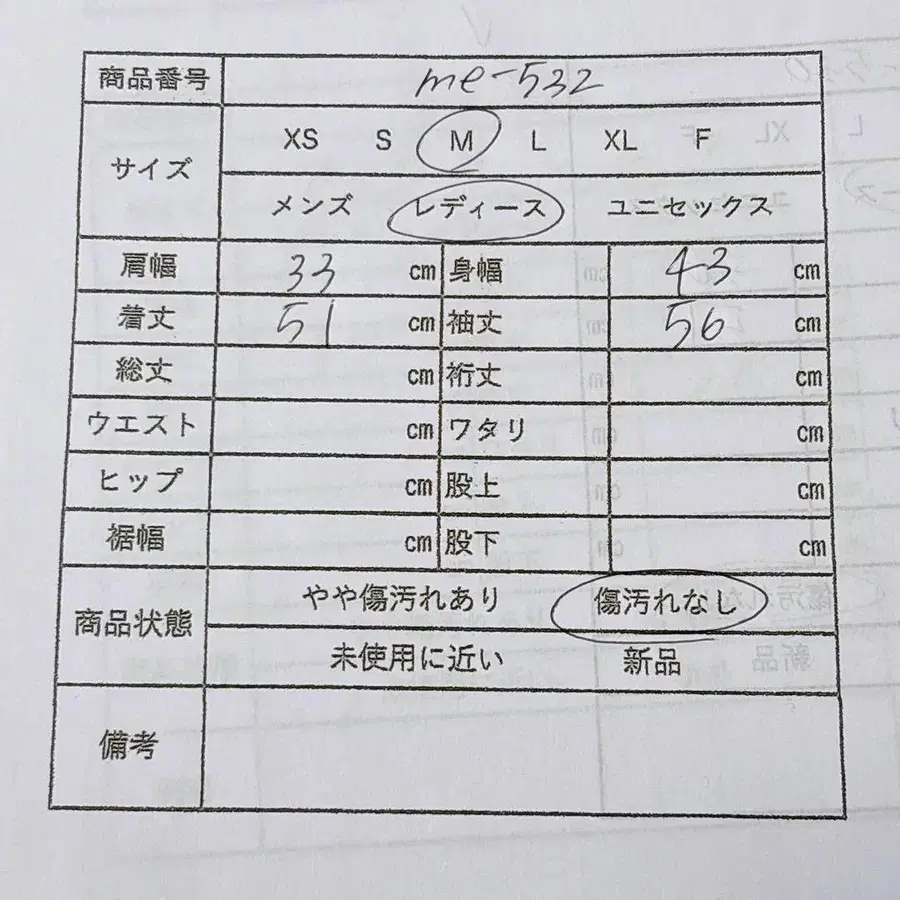 商品番号 me-532
サイズ XS S M L XL F
メンズ レディース ユニセックス
肩幅 33 cm 身幅 43 cm
着丈 51 cm 袖丈 56 cm
総丈 cm 裄丈 cm
ウエスト cm ワタリ cm
ヒップ cm 股上 cm
裾幅 cm 股下 cm
商品状態 やや傷汚れあり 傷汚れなし
未使用に近い 新品
備考